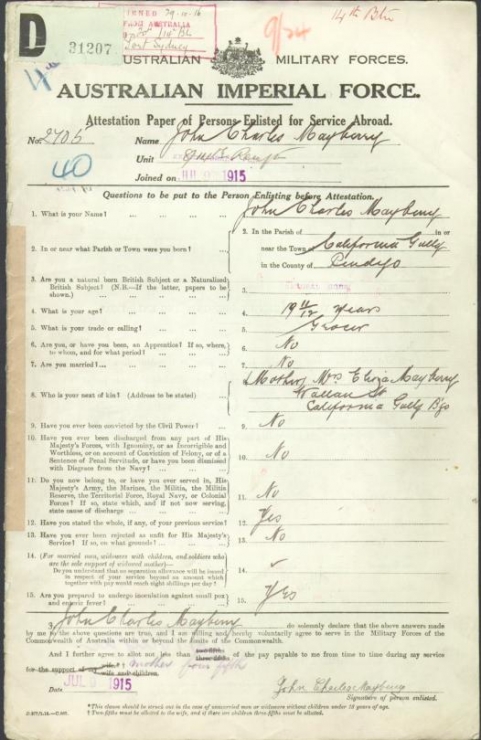 D
31207
29.10.16
14th Btn
9/24
AUSTRALIAN MILITARY FORCES.
AUSTRALIAN IMPERIAL FORCE.
Attestation Paper of Persons Enlisted for Service Abroad.
No. 2705 Name John Charles Mayberry
40 Unit
Joined on JUL 1915
Questions to be put to the Person Enlisting before Attestation.
1. What is your Name? 1. John Charles Mayberry
2. In or near what Parish or Town were you born? 2. In the Parish of in or
near the Town of California Gully
in the County of Bendigo
3. Are you a natural born British Subject or a Naturalised
British Subject? (N.B.—If the latter, papers to be
shown.) 3.
4. What is your age? 4. 19 11/12 years
5. What is your trade or calling? 5. Grocer
6. Are you, or have you been, an Apprentice? If so, where,
to whom, and for what period? 6. No
7. Are you married? 7. No
8. Who is your next of kin? (Address to be stated) 8. Mother, Mrs Eliza Mayberry
Wallan St
California Gully B'go
9. Have you ever been convicted by the Civil Power? 9. No
10. Have you ever been discharged from any part of His
Majesty's Forces, with Ignominy, or as Incorrigible and
Worthless, or on account of Conviction of Felony, or of a
Sentence of Penal Servitude, or have you been dismissed
with Disgrace from the Navy? 10. No
11. Do you now belong to, or have you ever served in, His
Majesty's Army, the Marines, the Militia, the Militia
Reserve, the Territorial Force, Royal Navy, or Colonial
Forces? If so, state which, and if not now serving,
state cause of discharge 11. No
12. Have you stated the whole, if any, of your previous service? 12. Yes
13. Have you ever been rejected as unfit for His Majesty's
Service? If so, on what grounds? 13. No
14. (For married men, widowers with children, and soldiers who
are the sole support of widowed mother)—
Do you understand that no separation allowance will be issued
in respect of your service beyond an amount which
together with pay would reach eight shillings per day? 14.
15. Are you prepared to undergo inoculation against small pox
and enteric fever? 15. Yes
I, John Charles Mayberry do solemnly declare that the above answers made
by me to the above questions are true, and I am willing and hereby voluntarily agree to serve in the Military Forces of the
Commonwealth of Australia within or beyond the limits of the Commonwealth.
And I further agree to allot not less than of the pay payable to me from time to time during my service
for the support of my mother
wife and children.
Date JUL 1915 John Charles Mayberry
Signature of person enlisted.
*This clause should be struck out in the case of unmarried men or widowers without children under 18 years of age.
† Two-fifths must be allotted to the wife, and if there are children three-fifths must be allotted.